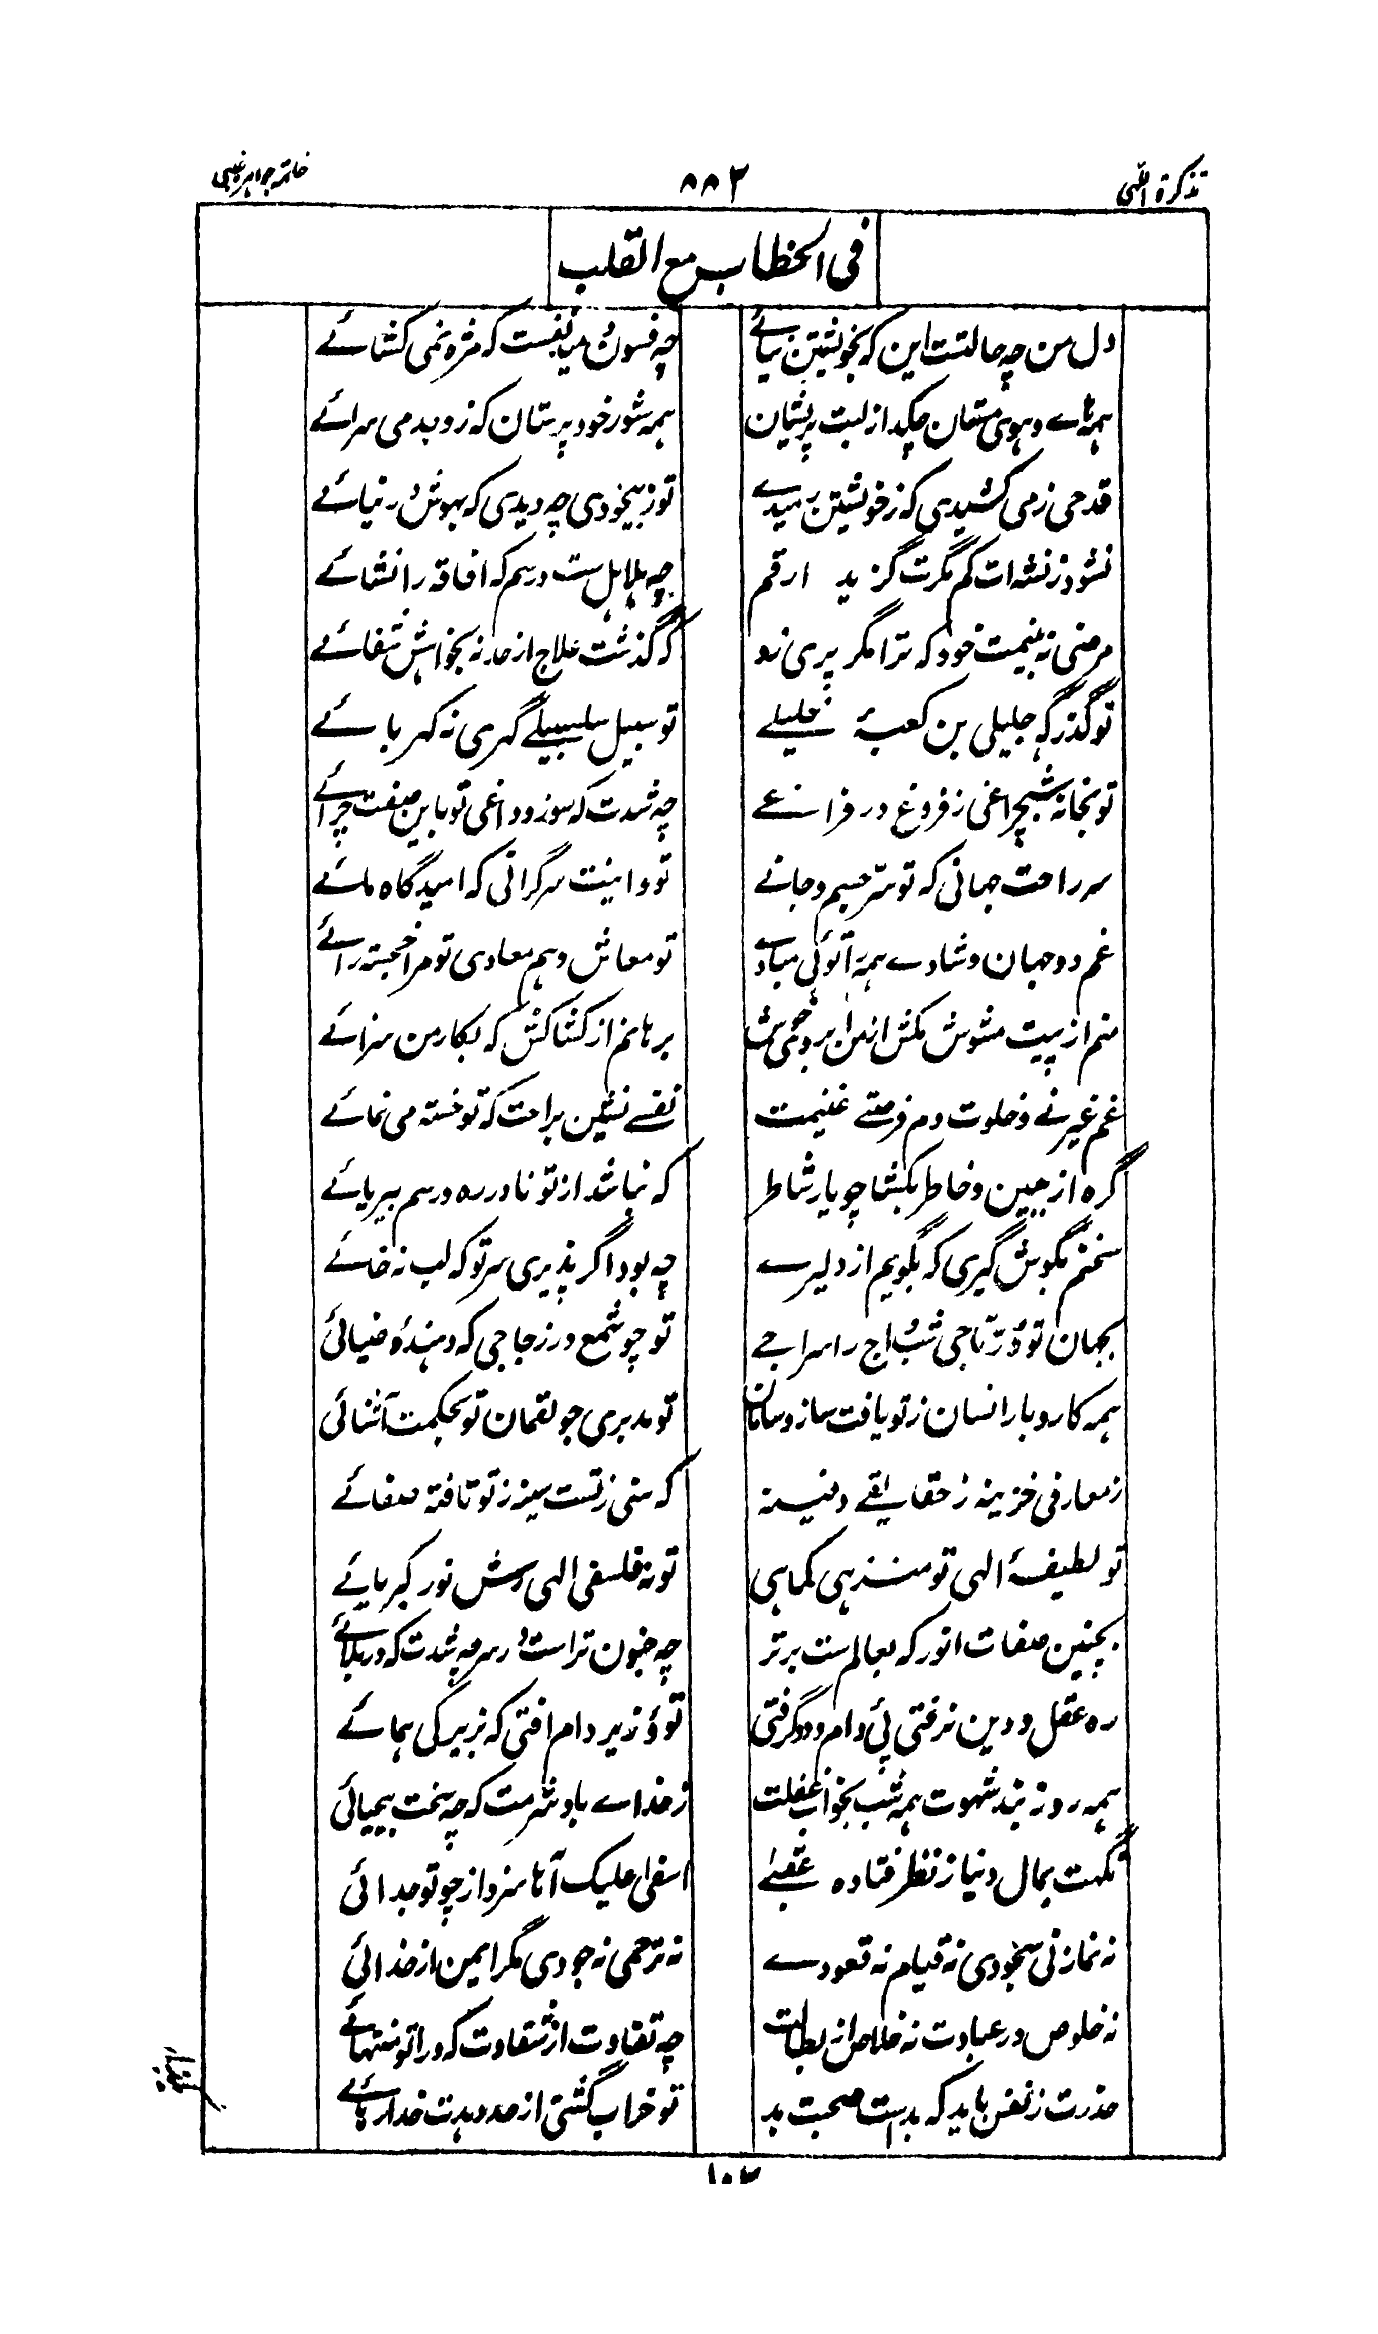 تذکرة اللّٰہی ۸۸۲ خاتمہ جواہر غیبی
فی الخطاب مع القلب
دل من چہ حالتست این کہ بخویشتن نیائے چہ فسون میانفست کہ مژہ نمی کشائے
ہمہ ہاے وہوی مستان چکید از لبت پریشان ہمہ شور خود پرستان کہ ز وبد می سرائے
قدحی زمی کشیدی کہ زخویشتن رمیدے تو ز بیخودی چہ دیدی کہ بہوش در نیائے
نشود ز نشہ ات کم مگرت گزید ارقم چہ ہلاہل ست درہم کہ افاقہ را نشائے
مرضی نہ بینمت خود کہ ترا مگر پری زد کہ گذشت علاج از حد نہ بخواہش شفائے
تو گذرگہ جلیلی بن کعبۂ خلیلے تو سبیل سلسبیلے گہری نہ کہربائے
تو بخانہ شبچراغی ز فروغ در فراغے چہ شدت کہ سوز و داغی تو باین صفت چرائے
سر راحت جہانی کہ تو سرّ جسم و جانے تو و اینت سرگرانی کہ امیدگاہ مائے
غم دو جہان و شادے ہمہ را توئی مبادے تو معاش وہم معادی تو مرا خجستہ رائے
منم از پیت مشوش مکش اندرین بر و خوش برہانم از کشاکش کہ بکار من سزائے
غم غیر نے و خلوت دم فرصتے غنیمت نفسے نشین براحت کہ تو خستہ می نمائے
گرہ از جبین و خاطر بکشا چو یار شاطر کہ نباشد از تو نادر رہ و رسم بیریائے
سخنم بگوش گیری کہ بگویم از دلیرے چہ بود اگر پذیری سر تو کہ لب نہ خائے
بجہان تو درّ تاجی شب داج را سراجے تو چو شمع در زجاجی کہ دہندۂ ضیائی
ہمہ کاروبار انسان ز تو یافت ساز و سامان تو مدبری چو لقمان تو بحکمت آشنائی
ز معارفی خزینہ ز حقایقے دفینہ کہ سنی ز تست سینہ ز تو تافتہ صفائے
تو لطیفۂ الہی تو منزہی کماہی تو نہ فلسفی الہی روش نور کبریائے
بچنین صفات انور کہ بعالم ست برتر چہ جنون تراست در سر چہ شدت کہ در بلائے
رہ عقل و دین نرفتی پئے دام و دد گرفتی تو و زیر دام افتی کہ بزیرکی ہمائے
ہمہ روز بند شہوت ہمہ شب بخواب غفلت ز خداے باد شرمت کہ چہ سخت بیحیائی
نگہت بمال دنیا ز نظر فتادہ عقبےٰ اسفی علیک آہا سزد از چو تو جدائی
نہ نماز نی سجودی نہ قیام نہ قعودے نہ ترحمی نہ جودی مگر ایمن از خدائی
نہ خلوص در عبادت نہ خلاص از بطالت چہ تفاوت از شقاوت کہ در اتو منتہائے
حذرت ز نفس باید کہ بدست صحبت بد تو خراب گشتی از حد دہدت خدا رہائے
۱۰۳